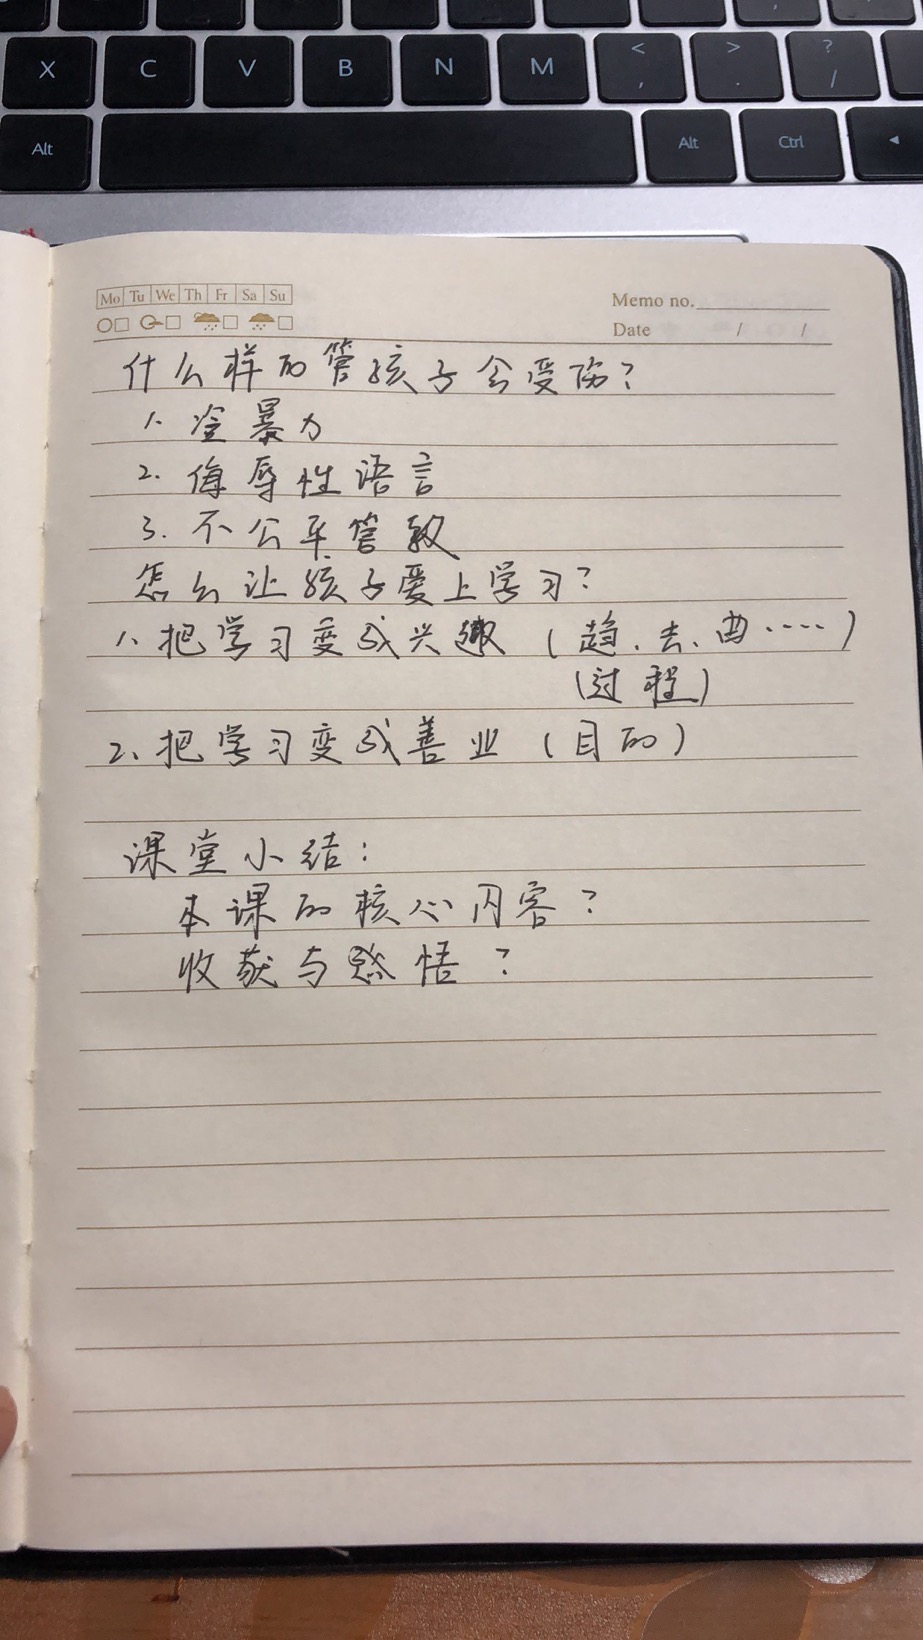 X C V B N M < , > . ? /
Alt Alt Ctrl
Mo Tu We Th Fr Sa Su
Memo no.
Date / /
什么样的管孩子会受伤？
1. 冷暴力
2. 侮辱性语言
3. 不公平管教
怎么让孩子爱上学习？
1、把学习变成兴趣（趋、去、曲····）
（过程）
2、把学习变成善业（目的）
课堂小结：
本课的核心内容？
收获与感悟？